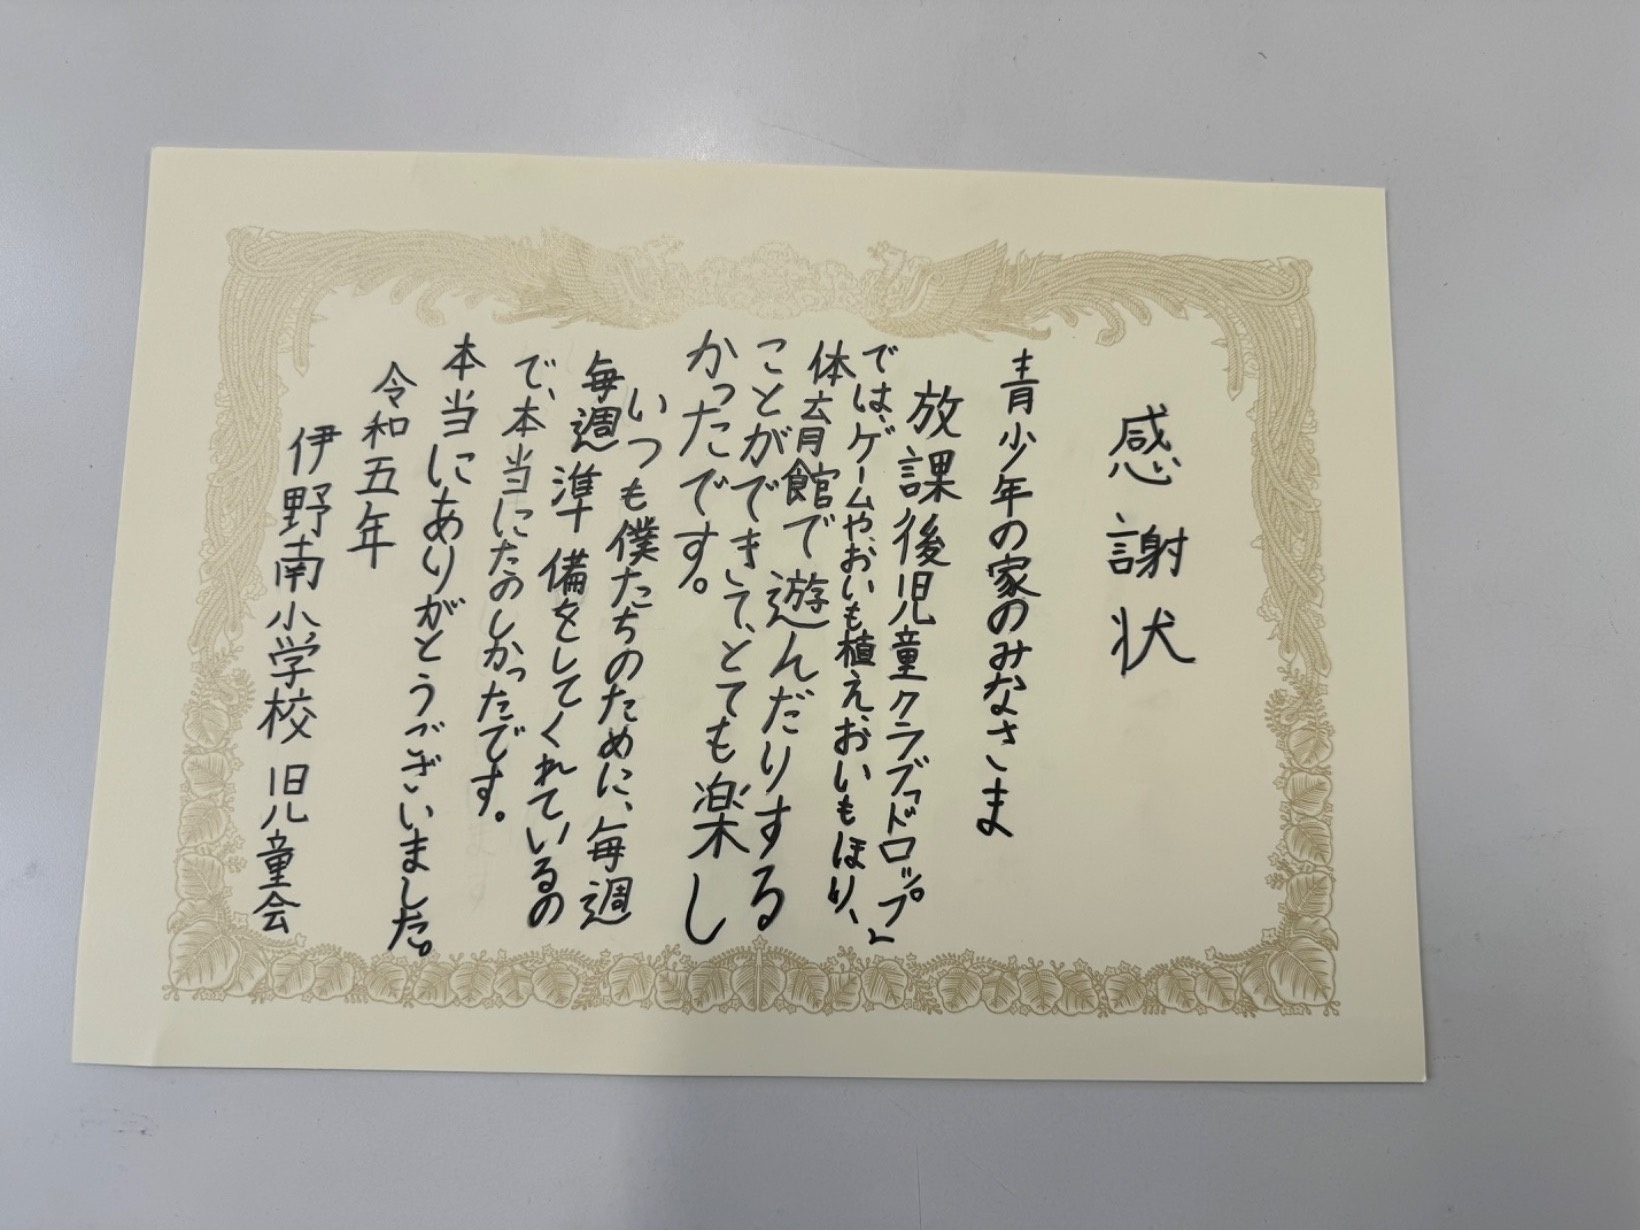 感謝状
青少年の家のみなさま
放課後児童クラブ「ドロップ」
では、ゲームや、おいも植え、おいもほり、
体育館で遊んだりする
ことができて、とても楽し
かったです。
いつも僕たちのために、毎週
毎週準備をしてくれているの
で、本当にたのしかったです。
本当にありがとうございました。
令和五年
伊野南小学校 児童会